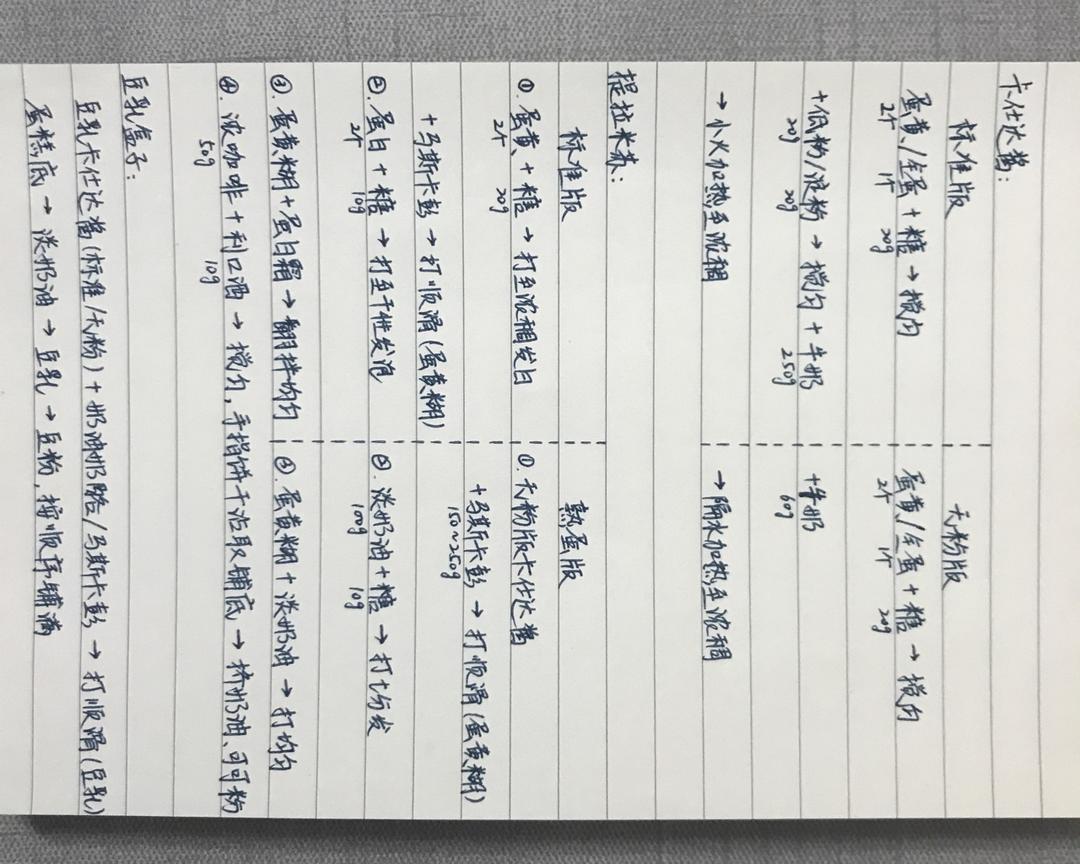 卡仕达酱:
标准版 无粉版
蛋黄/全蛋 + 糖 → 搅匀 蛋黄/全蛋 + 糖 → 搅匀
2个 1个 20g 2个 1个 20g
+低粉/淀粉 → 搅匀 + 牛奶 +牛奶
20g 20g 250g 60g
→ 小火加热至浓稠 → 隔水加热至浓稠
提拉米苏:
标准版 熟蛋版
①. 蛋黄 + 糖 → 打至浓稠发白 ①. 无粉版卡仕达酱
2个 20g
+马斯卡彭 → 打顺滑(蛋黄糊) +马斯卡彭 → 打顺滑(蛋黄糊)
150~250g
②. 蛋白 + 糖 → 打至干性发泡 ②. 淡奶油 + 糖 → 打七分发
2个 10g 100g 10g
③. 蛋黄糊 + 蛋白霜 → 翻拌均匀 ③. 蛋黄糊 + 淡奶油 → 打均匀
④. 浓咖啡 + 利口酒 → 搅匀, 手指饼干沾取铺底 → 挤奶油、可可粉
50g 10g
豆乳盒子:
豆乳卡仕达酱(标准/无粉) + 奶油奶酪/马斯卡彭 → 打顺滑(豆乳)
蛋糕底 → 淡奶油 → 豆乳 → 豆粉, 按顺序铺满